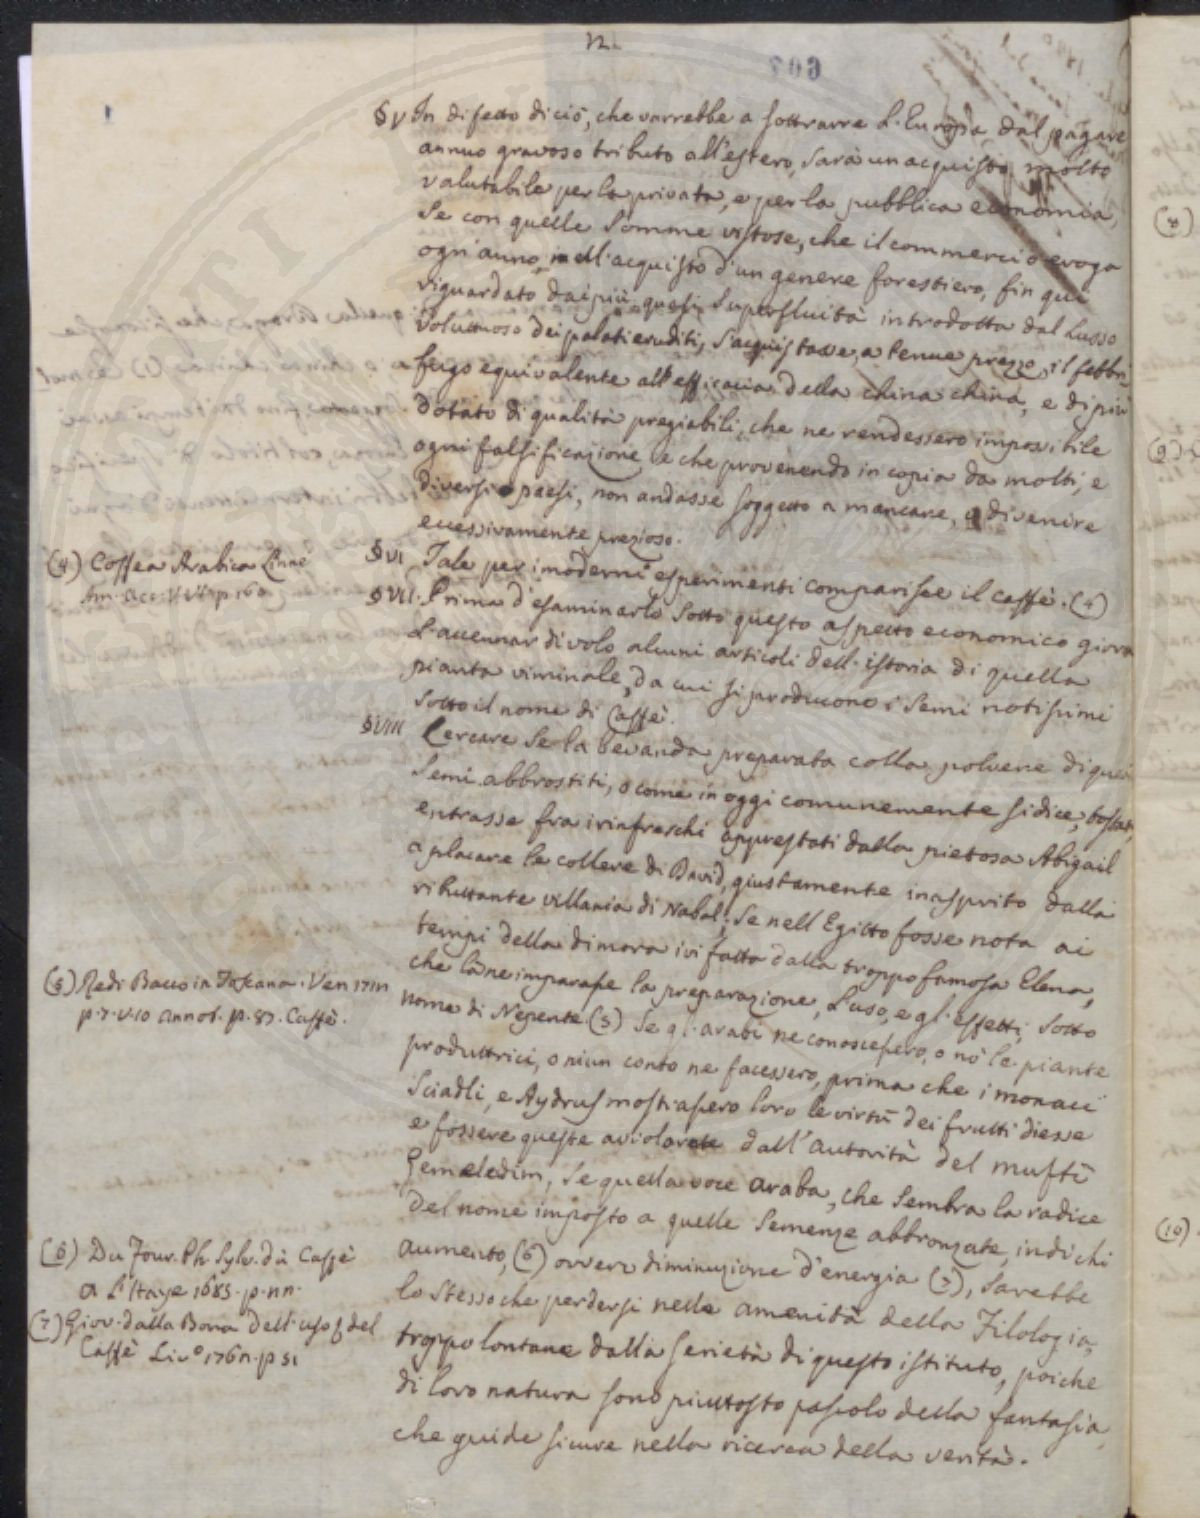 2.
607
§V In difetto di ciò, che varrebbe a sottrarre L'Europa dal pagare
annuo gravoso tributo all'estero, sarà un acquisto molto
valutabile per la privata, e per la pubblica economia,
Se con quelle Somme vistose, che il commercio eroga
ogn'anno nell'acquisto d'un genere forestiero, fin qui
riguardato dai più quasi Superfluità introdotta dal Lusso
Voluttuoso dei palati eruditi, S'acquistasse, a tenue prezzo, il febbri=
fugo equivalente all'efficacia della china china, e di più
Dotato di qualità pregiabili, che ne rendessero impossibile
ogni falsificazione e che provenendo in copia da molti, e
diversi paesi, non andasse soggetto a mancare, o divenire
eccessivamente prezioso.
§VI Tale per i moderni esperimenti comparisce il caffè. (4)
(4) Coffea Arabica Linné
Am. Acc. V. VI p. 160
§VII. Prima d'esaminarlo Sotto questo aspetto economico giova
L'accennar di volo alcuni articoli dell'istoria di quella
pianta viminale, da cui si producono i Semi notissimi
Sotto il nome di Caffè.
§VIII Cercare Se la bevanda preparata colla polvere di quei
Semi abbrostiti, o come in oggi comunemente si dice, tostati,
entrasse fra i rinfreschi apprestati dalla pietosa Abigail
a placare le collere di David, giustamente inasprito dalla
ributtante villania di Nabal; Se nell'Egitto fosse nota ai
tempi della dimora ivi fatta dalla troppo famosa Elena,
che là ne imparasse la preparazione, L'uso, e gl'effetti, Sotto
nome di Nepente. (5) Se gl'arabi ne conoscessero, o nò le piante
(5) Redi Bacco in Toscana. Ven 1711
p. 7. v. 10 annot. p. 87. Caffè.
produttrici, o niun conto ne facessero, prima che i monaci
Sciadli, e Aydrus mostrassero loro le virtù dei frutti di esse
e fossere queste avvalorate dall'autorità del muftì
Gemaledim, Se quella voce araba, che Sembra la radice
del nome imposto a quelle Semenze abbronzate, indichi
aumento, (6) ovvero diminuzione d'energia (7), Sarebbe
(6) Du Four. Ph. Sylv. du Caffè
a L'Haye 1685. p. nn.
lo Stesso che perdersi nelle amenità della Filologia,
(7) Giov. dalla Bona dell'uso del
Caffè Liv.o 1762. p 51
troppo lontane dalla Serietà di questo istituto, poiche
di loro natura Sono piuttosto pascolo della fantasia,
che guide sicure nella ricerca della verità.
(8)
(9)
(10)